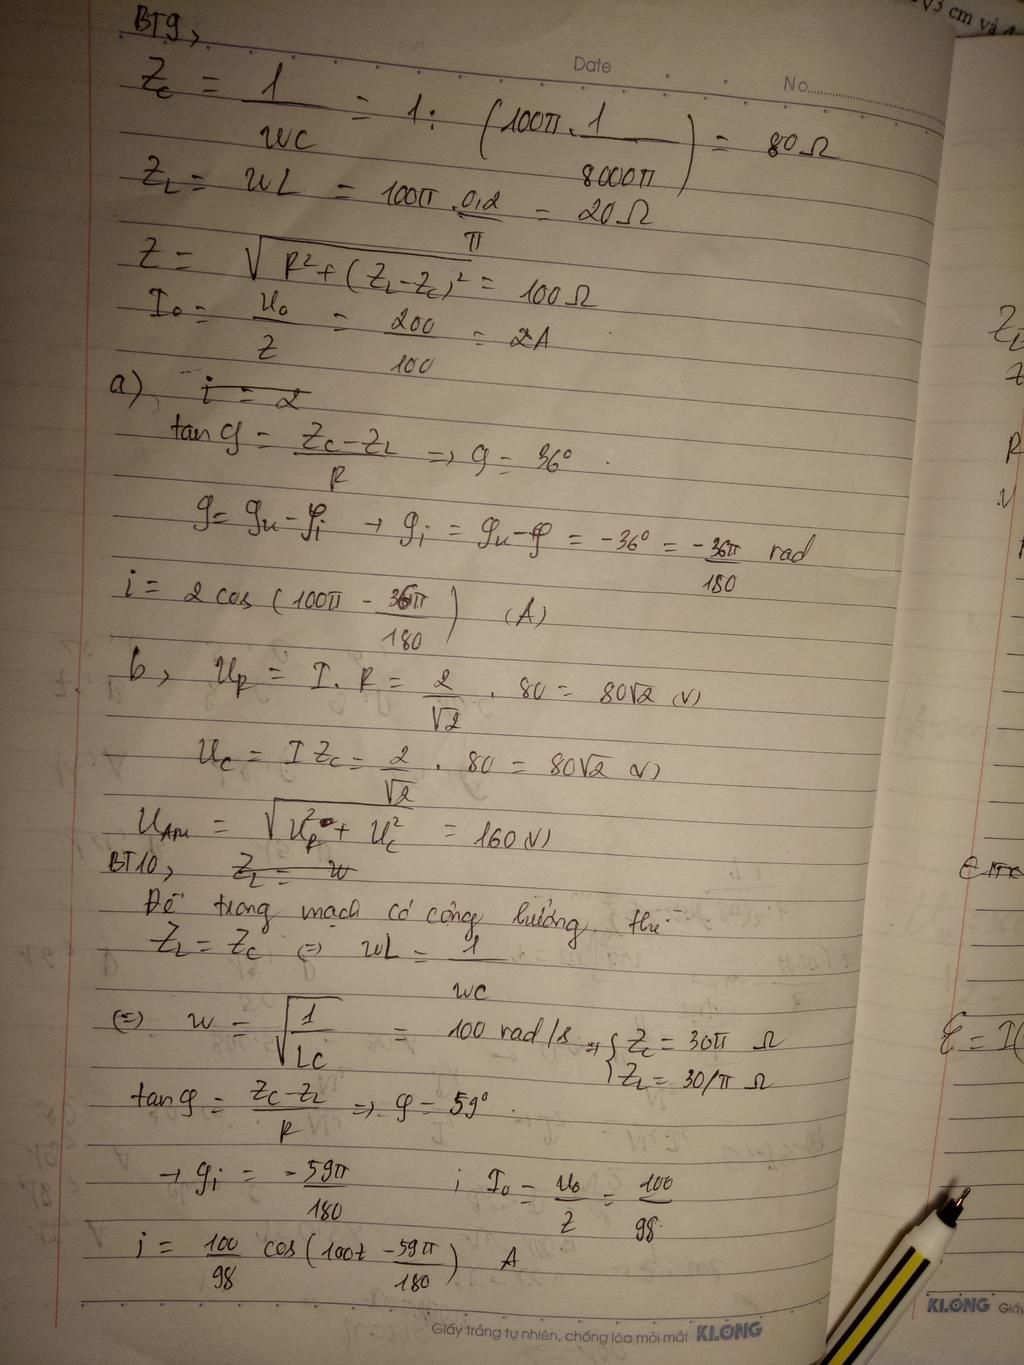 √3 cm và đ
BT9,
Date
No
Z_C = 1/ωC = 1 : (100π . 1/8000π) = 80Ω
Z_L = ωL = 100π . 0,2/π = 20Ω
Z = √(R² + (Z_L - Z_C)²) = 100Ω
I₀ = U₀/Z = 200/100 = 2A
a) i = 2
tan φ = (Z_C - Z_L)/R => φ = 36° .
φ = φu - φi → φi = φu - φ = -36° = -36π/180 rad
i = 2 cos (100π - 36π/180) (A)
b, U_R = I . R = 2/√2 . 80 = 80√2 (V)
U_C = I Z_C = 2/√2 . 80 = 80√2 (V)
U_AM = √(U_R² + U_C²) = 160 (V)
BT10, Z_L = ω
Để trong mạch có cộng hưởng thì
Z_L = Z_C (=) ωL = 1/ωC
(=) ω = √(1/LC) = 100 rad/s => { Z_C = 30π Ω
Z_L = 30/π Ω
tan φ = (Z_C - Z_L)/R => φ = 59° .
→ φi = -59π/180 ; I₀ = U₀/Z = 100/98
i = 100/98 cos (100t - 59π/180) A
Giấy trắng tự nhiên, chống lóa mỏi mắt KLONG
Z_L
Z
R
E = I(
KLONG Giấy